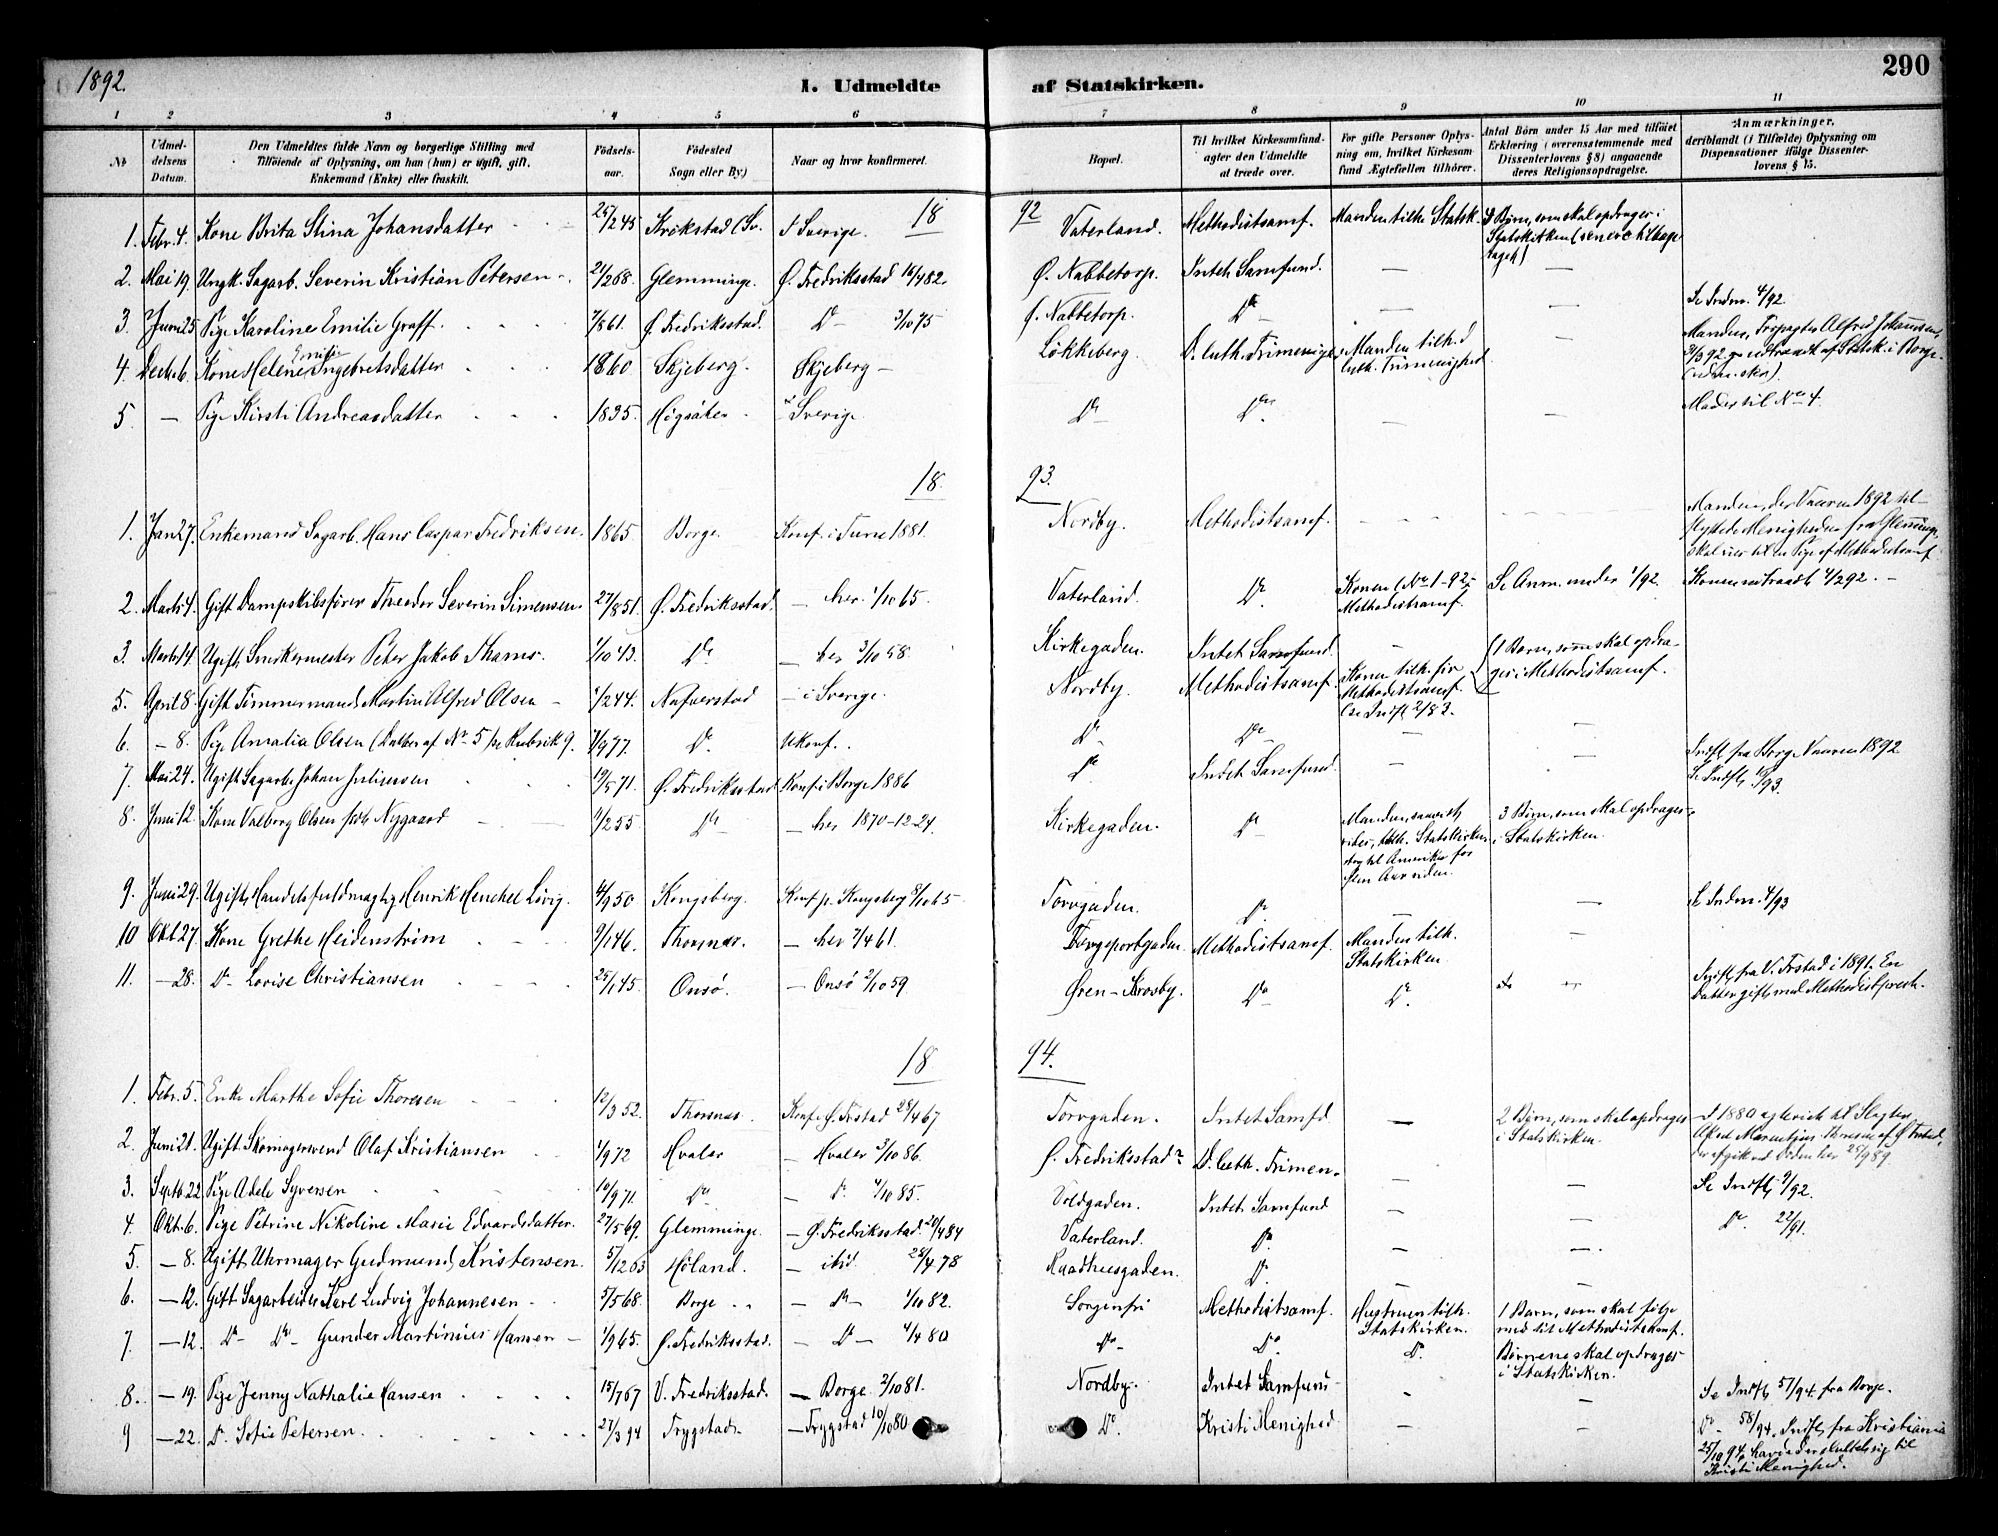 1892.
I. Udmeldte af Statskirken.
290
1 2 3 4 5 6 7 8 9 10 11
No
Udmeldelsens Datum.
Den Udmeldtes fulde Navn og borgerlige Stilling med
Tilføiende af Oplysning, om han (hun) er ugift, gift,
Enkemand (Enke) eller fraskilt.
Fødselsaar.
Fødested
Sogn eller By)
Naar og hvor konfirmeret.
Bopæl.
Til hvilket Kirkesamfund
agter den Udmeldte
at træde over.
For gifte Personer Oplysning om, hvilket Kirkesamfund Ægtefællen tilhører.
Antal Børn under 15 Aar med tilføiet
Erklæring (overensstemmende med
Dissenterlovens § 8) angaaende
deres Religionsopdragelse.
Anmærkninger,
deriblandt (i Tilfælde) Oplysning om
Dispensationer ifølge Dissenterlovens § 15.
18 92
1. Febr. 4. Kone Brita Stina Johansdatter 25/2 45 Krokstad (Sv. i Sverige. Vaterland. Methodistsamf. Manden tilh. Statsk. Børn, som skal opdrages i
Statskirken (senere tilbage
taget)
2. Mai 19. Ungk. Sagarb. Severin Kristian Petersen 21/2 68. Glemminge. Ø. Fredriksstad 16/4 82. Ø. Nabbetorp. Intet Samfund. — —
3. Juni 25 Pige Karoline Emilie Graff. 7/8 61. Ø. Fredriksstad. Do — 3/10 75 Ø. Nabbetorp. Do — — — Se Indm. 4/92.
4. Decb. 6. Kone Helene Emilie Ingebretsdatter 1860 Skjeberg. Skjeberg — Løkkeberg. D. luth. Frimenigh. Manden tilh. d.
luth. Frimenighed — Manden, Alfred Johannsen,
3/3 92 udtraadt af Statsk. i Borge.
5 — Pige Kirsti Andreasdatter 1835. Høgsäter i Sverige Do — Do. — — Moder til No 4.
18 93.
1. Jan 27. Enkemand Sagarb. Hans Caspar Fredriksen. 1865 Borge. Konf. i Tune 1881. Nordby. Methodistsamf. Manden, der Vaaren 1892 til-
flyttede Menigheden fra Glemminge,
skal vies til en Pige af Methodistsamf
2. Marts 4. Gift Dampskibsfører Theodor Severin Simensen 27/8 51. Ø. Fredriksstad. — her 1/10 65. Vaterland. Do. Konen (No 1-92)
Methodistsamf. Se Anm. under 1/92. Konen udtraadt 4/2 92. —
3. Marts 14. Ugift Snedkermester Peter Jakob Thams. 1/10 43. Do — her 3/10 58. Kirkegaden. Intet Samfund. —
5. April 8. Gift Tømmermand Martin Alfred Olsen 1/2 44. Nafverstad — i Sverige. Nordby. Methodistsamf. Konen tilh. før
Methodistsamf.
(se Indfl. 2/83. 1 Barn, som skal opdra-
ges i Methodistsamf.
6. — 8. Pige Amalia Olsen (Datter af No 5 se Rubrik 9. 7/9 77. Do. Ukonf. Do — Do — — —
7. Mai 24. Ugift Sagarb. Johan Juliussen 19/5 71. Ø. Fredriksstad Konf. i Borge 1886 Do Intet Samfund. — — Indfl. fra Borge Vaaren 1892.
Se Indfl. /93.
8. Juni 12. Kone Valborg Olsen født Nygaard 11/2 55 Do — her 1870-12-24. Kirkegaden. Do — Manden,
tilh. Statskirken
drog til Amerika for
fem Aar siden. 3 Børn, som skal opdrages
i Statskirken.
9. Juni 29. Ugift Handelsfuldmægtig Henrik Henchel Løvig. 4/9 50 Kongsberg. Konf. p. Kongsberg 8/10 65 Torvgaden. Do. — — Se Indm. 4/93
10 Okt. 27. Kone Grethe Heidenstrøm 9/1 46. Thorsnæs. — her 7/4 61. Færgeportgaden. Methodistsamf. Manden tilh.
Statskirken. —
11. — 28. Do — Lovise Christiansen 25/1 45. Onsø. — Onsø 2/10 59 Øren-Krosby. Do — Do. Indfl. fra V. Frstad i 1891. En
Datter gift med Methodistprest.
18 94.
1. Febr. 5. Enke Marthe Sofie Thoresen 12/3 52. Thorsnæs. Konf. Ø. Frstad 28/4 67 Torvgaden. Intet Samfd. — 2 Børn, som skal opdrages
i Statskirken. I 1880 til Slagter
af Ø. Frstad,
der afgik ved Døden her 25/9 89
2. Juni 21. Ugift Skomagersvend Olaf Kristiansen 1/9 72 Hvaler — Hvaler 3/10 86. Ø. Fredriksstad? D. luth. Frimen. — —
3. Septb. 22 Pige Adele Syversen 10/9 71. Do — Do. 4/10 85. Voldgaden. Intet Samfund — — Se Indfl. 9/92.
4. Okt. 6. Pige Petrine Nikoline Marie Edvardsdatter. 27/5 69. Glemminge. — Ø. Fredriksstad. 20/4 84 Vaterland. Do. — — Do. 22/91.
5. — 8. Ugift Uhrmager Gudmund Kristensen. 5/12 63 Høland. — ibid. 28/4 78 Raadhusgaden. Do. — —
6. — 12. Gift Sagarbeider Karl Ludvig Johannesen 5/5 68. Borge — Do — 1/10 82. Sorgenfri Methodistsamf. Hustruen tilh.
Statskirken. 1 Barn, som skal følge
med til Methodistsamf.
7. — 12. Do — Do Gunder Martinius Hansen — 1/9 65. Ø. Fredriksstad. — Do — 4/4 80 Do — Do. Do. Børnene skal opdrages
i Statskirken.
8. — 19. Pige Jenny Nathalie Hansen 15/7 67 V. Fredriksstad. — Borge 2/10 81. Nordby. Intet Samfund — — Se Indfl. 57/94. fra Borge.
9 — 22. Do. Sofie Petersen Trygstad. — Trygstad 10/10 80 Do. Kristi Menighed — — Do — 58/94. Indfl. fra Kristiania
25/10 94, havde der sluttet sig til
Kristi Menighed.